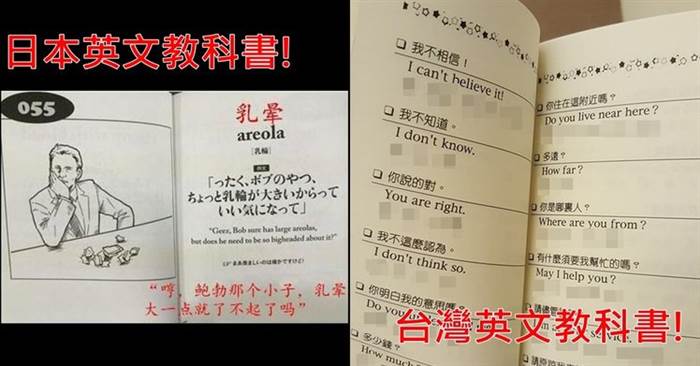 日本英文教科書!
055
乳暈
areola
[乳輪]
例文
「ったく、ボブのやつ、
ちょっと乳輪が大きいからって
いい気になって」
"Geez, Bob sure has large areolas,
but does he need to be so bigheaded about it?"
“哼，鲍勃那个小子，乳晕
大一点就了不起了吗”
我不相信！
I can't believe it!
我不知道。
I don't know.
你說的對。
You are right.
我不這麼認為。
I don't think so.
你明白我的意思嗎？
多少錢？
How much
你住在這附近嗎？
Do you live near here?
多遠？
How far?
你是哪裏人？
Where are you from?
有什麼須要我幫忙的嗎？
May I help you?
台灣英文教科書!